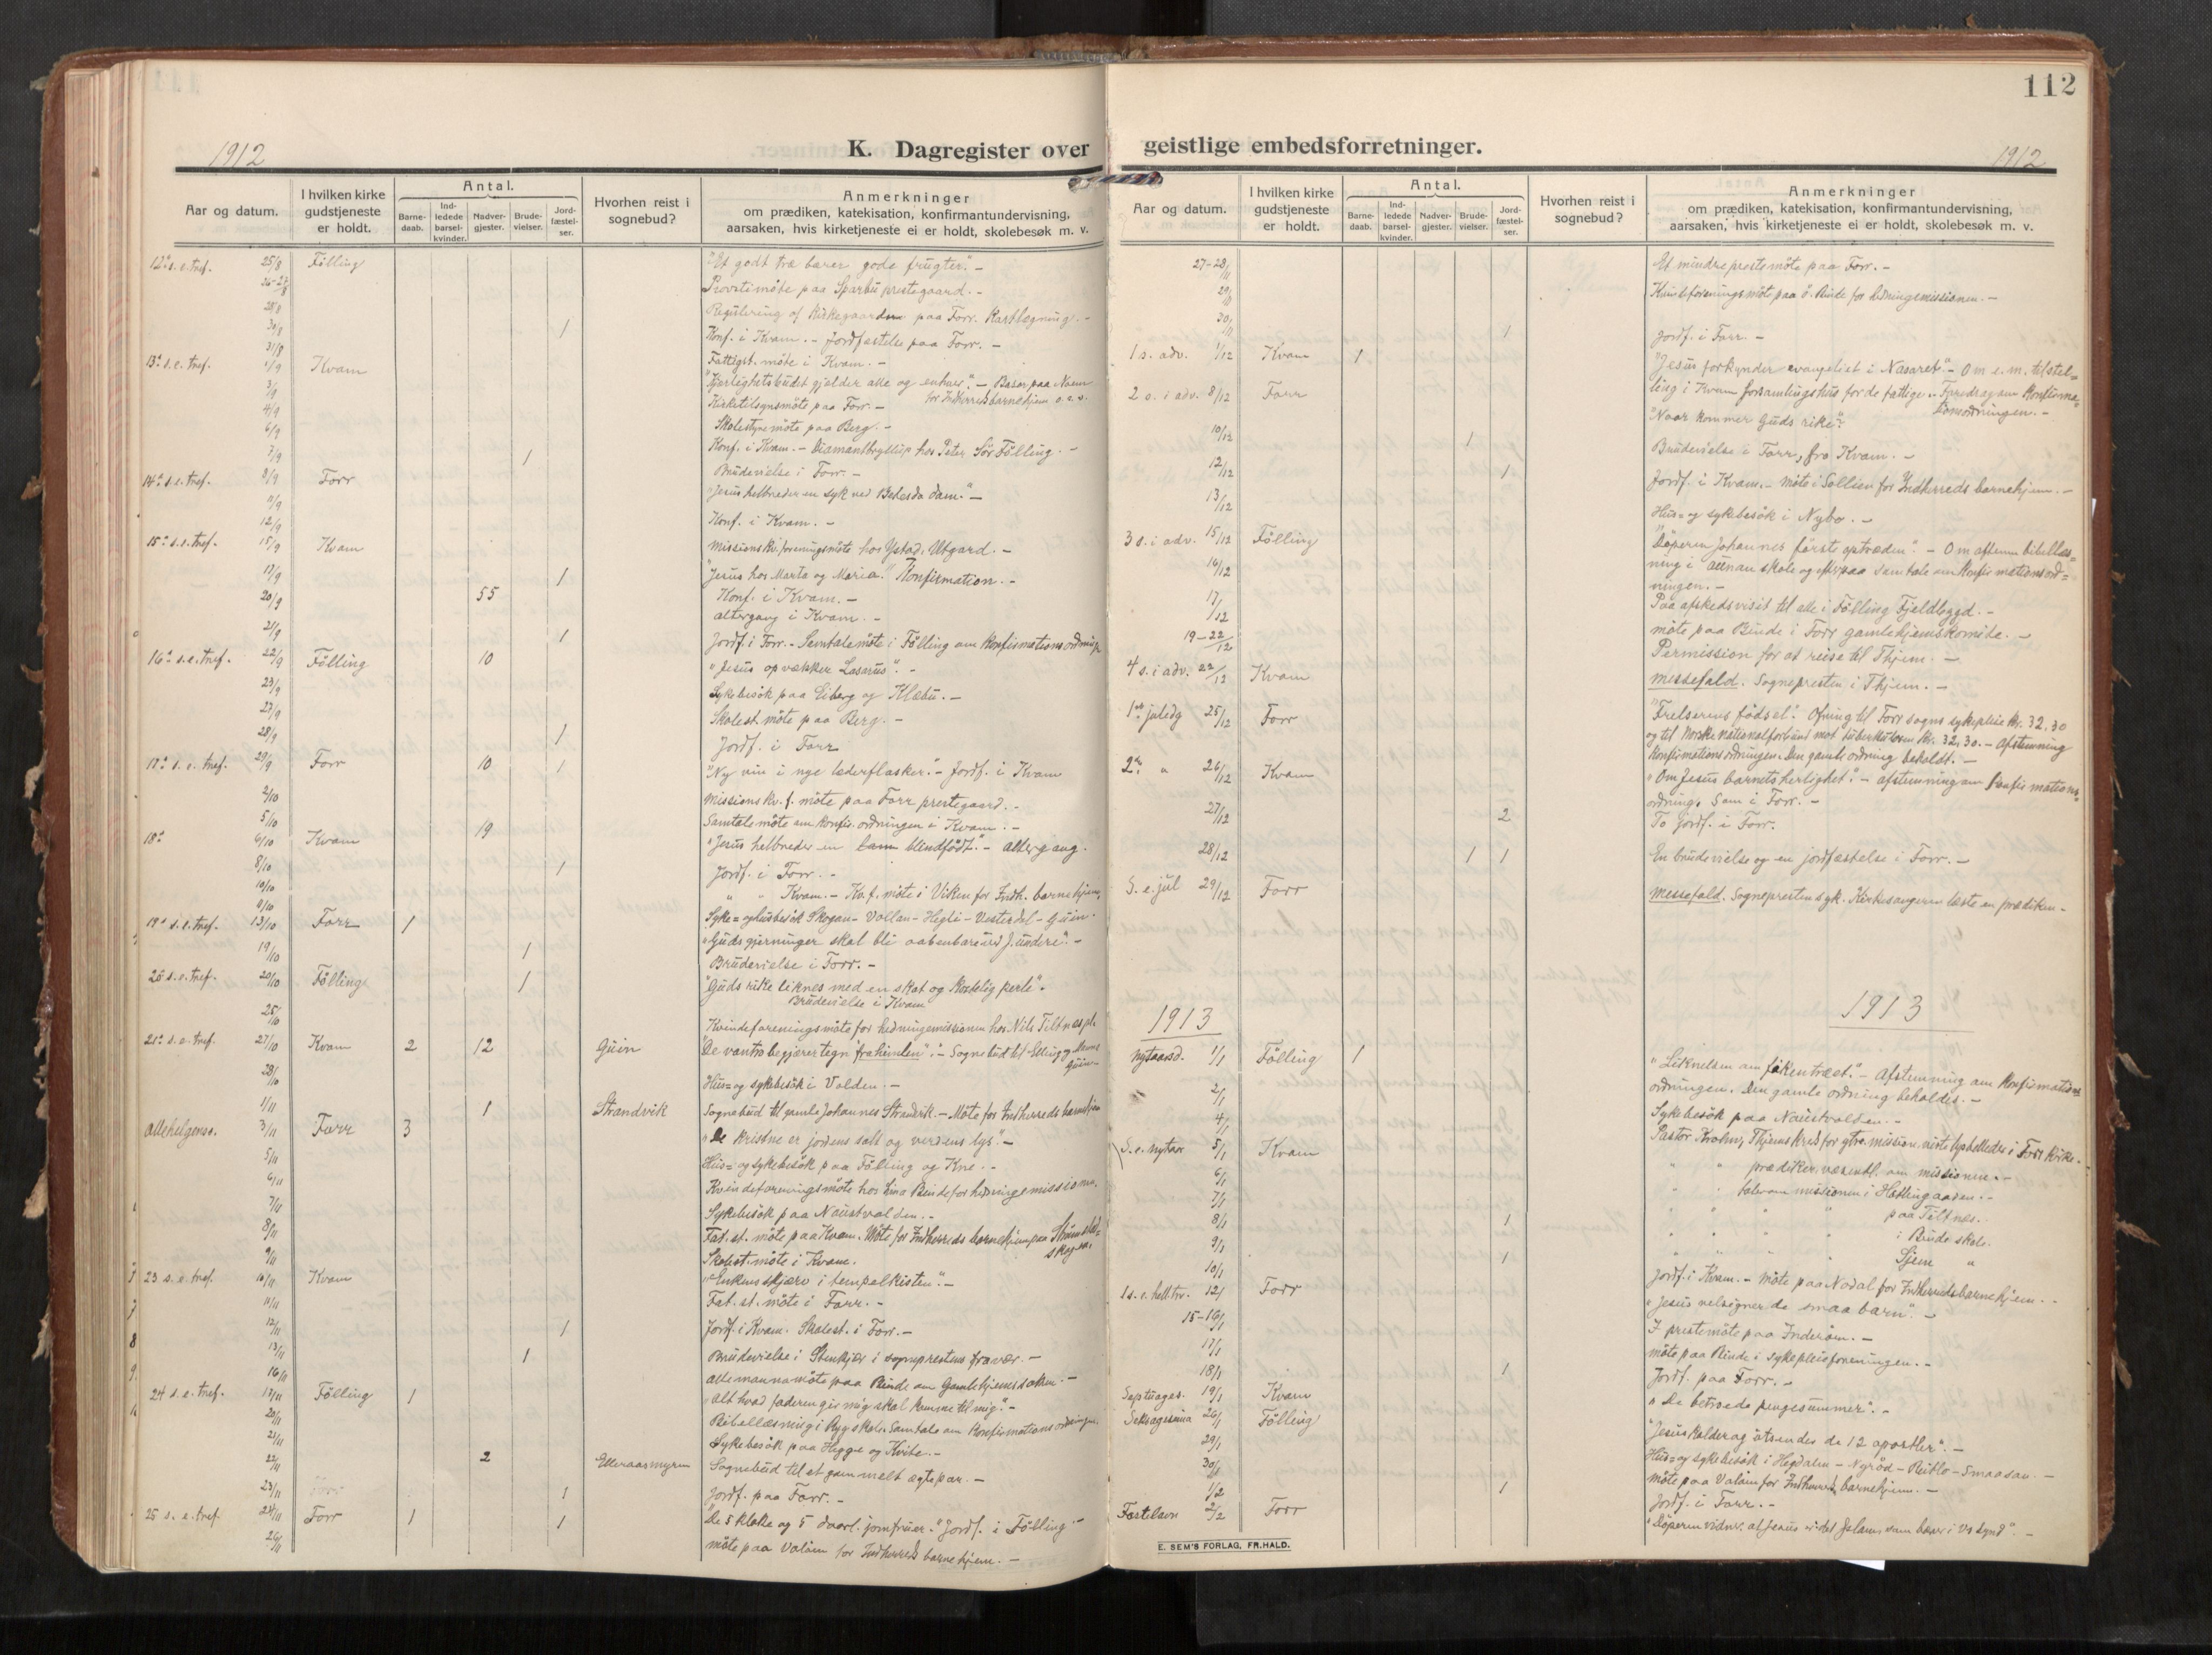 112
1912
K. Dagregister over geistlige embedsforretninger.
1912
Aar og datum.
I hvilken kirke gudstjeneste er holdt.
Antal.
Barnedaab.
Indledede barselkvinder.
Nadvergjester.
Brudevielser.
Jordfæstelser.
Hvorhen reist i sognebud?
Anmerkninger
om prædiken, katekisation, konfirmantundervisning,
aarsaken, hvis kirketjeneste ei er holdt, skolebesøk m. v.
12. s.e. tref. 25/8 Følling "Et godt træ bærer gode frugter". -
26-27/8 Provstimøte paa Sparbu prestegaard. -
Regulering af Kirkegaarden paa Forr. Kartlægning. -
30/8 1 Konf. i Kvam. - Jordfæstelse paa Forr. -
31/8 Fattigst. møte i Kvam. -
13. s.e. tref. 1/9 Kvam "Kjærlighetsbudet gjelder alle og enhver". - Basar paa Naem
for Indherreds barnehjem o.s.v.
3/9 Kirketilsynsmøte paa Forr. -
4/9 Skolestyremøte paa Berg. -
6/9 Konf. i Kvam. - Diamantbryllup hos Peter Sør Følling. -
7/9 1 Brudevielse i Forr. -
14. s.e. tref. 8/9 Forr "Jesus helbreder en syk ved Betesda dam." -
11/9 Konf. i Kvam. -
12/9 Missionskv.foreningsmøte hos Ystad, Utgard. -
15. s.e. tref. 15/9 Kvam "Jesus hos Marta og Maria." Konfirmation. -
17/9 1 Konf. i Kvam. -
20/9 55 Altergang i Kvam. -
21/9 1 Jordf. i Forr. - Samtalemøte i Følling om Konfirmationsordning
16. s.e. tref. 22/9 Følling 10 "Jesus opvækker Lasarus". -
23/9 Sykebesøk paa Eiberg og Klæbu. -
27/9 Skolest. møte paa Berg. -
28/9 1 Jordf. i Forr
17. s.e. tref. 29/9 Forr 10 1 "Ny vin i nye læderflasker." - Jordf. i Kvam
2/10 Missionskv.f. møte paa Forr prestegaard. -
5/10 Samtalemøte om konfir. ordningen i Kvam. -
18. 6/10 Kvam 19 "Jesus helbreder en blindfødt." - Altergang.
8/10 1 Jordf. i Forr. -
10/10 " " Kvam. - Kv.f. møte i Viken for Indh. barnehjem.
9/10 Syke= og husbesøk Skogan - Vollan - Hegli - Vesterdel - Guin.
19. s.e. tref. 13/10 Forr 1 "Guds gjerninger skal bli aabenbare ved J. undere". -
19/10 1 Brudevielse i Forr. -
20. s.e. tref. 20/10 Følling 1 "Guds rike liknes med en skat og kostelig perle".
Brudevielse i Kvam
25/10 Kvindeforeningsmøte for hedningemissionen hos Nils Tiltnes pl.
21. s.e. tref. 27/10 Kvam 2 12 Guin "De vantro begjærer tegn fra himlen". - Sognebud til Elling
Guin -
28/10 Hus= og sykebesøk i Volden. -
1/11 1 Strandvik Sognebud til gamle Johannes Strandvik. - Møte for Indherreds barnehjem
Allehelgenso. 3/11 Forr 3 "De kristne er jordens salt og verdens lys". -
5/11 Hus= og sykebesøk paa Følling og Kne. -
6/11 Kvindeforeningsmøte hos Lina Binde for hedningemissionen.
7/11 Sykebesøk paa Naustvolden. -
8/11 Fat. st. møte paa Kvam. Møte for Indherreds barnehjem paa
skogen.
9/11 Skolest. møte i Kvam.
23 s.e. tref. 10/11 Kvam "Enkens skjærv i tempelkisten". -
11/11 Fat. st. møte i Forr. -
12/11 1 Jordf. i Kvam. Skolest. i Forr. -
13/11 1 Brudevielse i Stenkjær i sogneprestens fravær. -
16/11 Allemannamøte paa Binde om Gamlehjemssaken. -
24 s.e. tref. 17/11 Følling 1 "Alt hvad faderen gir mig skal komme til mig". -
20/11 Bibellæsning i Ryg skole. Samtale om Konfirmationsordningen.
21/11 Sykebesøk paa Hegge og Kvite. -
22/11 2 Elleraasmyren Sognebud til et gammelt egtepar. -
23/11 1 Jordf. paa Forr. -
25 s.e. tref. 24/11 Forr 1 1 "De 5 kloke og 5 daarl. jomfruer." Jordf. i Følling -
26/11 Møte paa Valøen for Indherreds barnehjem. -
Aar og datum.
I hvilken kirke gudstjeneste er holdt.
Antal.
Barnedaab.
Indledede barselkvinder.
Nadvergjester.
Brudevielser.
Jordfæstelser.
Hvorhen reist i sognebud?
Anmerkninger
om prædiken, katekisation, konfirmantundervisning,
aarsaken, hvis kirketjeneste ei er holdt, skolebesøk m. v.
27-28/11 Et mindre prestemøte paa Forr. -
29/11 Kvindeforeningsmøte paa Ø. Binde for hedningemissionen. -
30/11 1 Jordf. i Forr. -
1 s. adv. 1/12 Kvam 1 "Jesus forkynder evangeliet i Nasaret". - Om e.m. tilstel=
ling i Kvam forsamlingshus for de fattige. - Foredrag om Konfirma=
tionsordningen. -
2 s. i adv. 8/12 Forr "Naar kommer Guds rike".
10/12 1 Brudevielse i Forr, fra Kvam. -
12/12 1 Jordf. i Kvam. - Møte i Sollien for Indherreds barnehjem. -
13/12 Hus= og sykebesøk i Nybo. -
3 s. i adv. 15/12 Følling "Døperen Johannes første optræden". - Om aftenen bibellæs=
ning i Aunan skole og efterpaa samtale om Konfirmationsord=
ningen. -
16/12 Paa afskedsvisit til alle i Følling Fjeldbygd. -
17/12 Møte paa Binde i Forr gamlehjemskomite. -
19-22/12 Permission for at reise til Thjem. -
4 s. i adv. 22/12 Kvam Messefald. Sognepresten i Thjem. -
1ste juledg 25/12 Forr "Frelserens fødsel". Ofring til Forr sogns sykepleie kr. 32.30
og til Norske nationalforbund mot tuberkulosen kr. 32,30. - Afstemning
Konfirmationsordningen. Den gamle ordning beholdt. -
2. " 26/12 Kvam "Om Jesus barnets herlighet". - Afstemning om Konfirmations=
ordning. Som i Forr. -
27/12 2 To jordf. i Forr.
28/12 1 1 En brudevielse og en jordfæstelse i Forr. -
S. e. jul 29/12 Forr Messefald. Sognepresten syk. Kirkesangeren læste en prædiken -
1913
1913
Nytaarsd. 1/1 Følling 1 "Liknelsen om fikentræet." - Afstemning om Konfirmations
ordningen. Den gamle ordning beholdes. -
2/1 Sykebesøk paa Naustvolden. -
4/1 Pastor Krohn, Thjems kred for ytre mission viste lysbilleder i Forr kirke. -
S. e. nytaar 5/1 Kvam " " prædiker væsentl. om missionen. -
6/1 " " taler om missionen i Høttingaasen. -
7/1 " " " " paa Tiltnes. -
8/1 1 " " " " i Binde skole.
9/1 " " " " Gjem "
10/1 1 Jordf. i Kvam. - Møte paa Nodal for Indherreds barnehjem. -
1 s. e. hell.tre. 12/1 Forr "Jesus velsigner de smaa barn". -
15-16/1 I prestemøte paa Inderøen. -
17/1 Møte paa Binde i sykepleieforeningen. -
18/1 1 Jordf. paa Forr. -
Septuages. 19/1 Kvam "De betroede pengesummer". -
Seksagesima 26/1 Følling "Jesus kalder og utsendes de 12 apostler". -
29/1 Hus= og sykebesøk i Hegdalen - Nyrød - Reitlo - Smaasan. -
30/1 Møte paa Valøen for Indherreds barnehjem. -
1/2 1 Jordf. i Forr. -
Fastelavn 2/2 Forr "Døperen vidner at Jesus er det Gudslam, som bærer V.s synd". -
E. SEM'S FORLAG, FR.HALD.